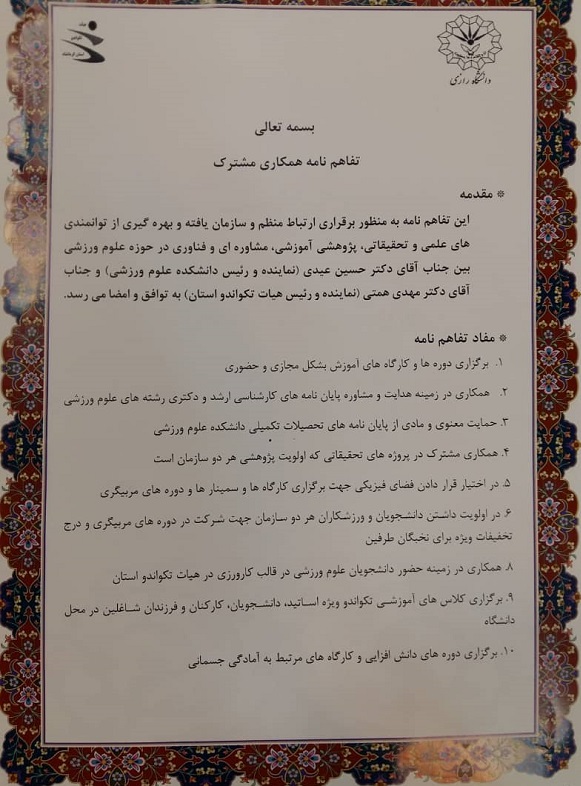 دانشگاه رازی
هیات
استان کرمانشاه
بسمه تعالی
تفاهم نامه همکاری مشترک
* مقدمه
این تفاهم نامه به منظور برقراری ارتباط منظم و سازمان یافته و بهره گیری از توانمندی
های علمی و تحقیقاتی، پژوهشی آموزشی، مشاوره ای و فناوری در حوزه علوم ورزشی
بین جناب آقای دکتر حسین عیدی (نماینده و رئیس دانشکده علوم ورزشی) و جناب
آقای دکتر مهدی همتی (نماینده و رئیس هیات تکواندو استان) به توافق و امضا می رسد.
* مفاد تفاهم نامه
۱. برگزاری دوره ها و کارگاه های آموزش بشکل مجازی و حضوری
۲. همکاری در زمینه هدایت و مشاوره پایان نامه های کارشناسی ارشد و دکتری رشته های علوم ورزشی
۳. حمایت معنوی و مادی از پایان نامه های تحصیلات تکمیلی دانشکده علوم ورزشی
۴. همکاری مشترک در پروژه های تحقیقاتی که اولویت پژوهشی هر دو سازمان است
۵. در اختیار قرار دادن فضای فیزیکی جهت برگزاری کارگاه ها و سمینار ها و دوره های مربیگری
۶. در اولویت داشتن دانشجویان و ورزشکاران هر دو سازمان جهت شرکت در دوره های مربیگری و درج
تخفیفات ویژه برای نخبگان طرفین
۸. همکاری در زمینه حضور دانشجویان علوم ورزشی در قالب کارورزی در هیات تکواندو استان
۹. برگزاری کلاس های آموزشی تکواندو ویژه اساتید، دانشجویان، کارکنان و فرزندان شاغلین در محل
دانشگاه
۱۰. برگزاری دوره های دانش افزایی و کارگاه های مرتبط به آمادگی جسمانی